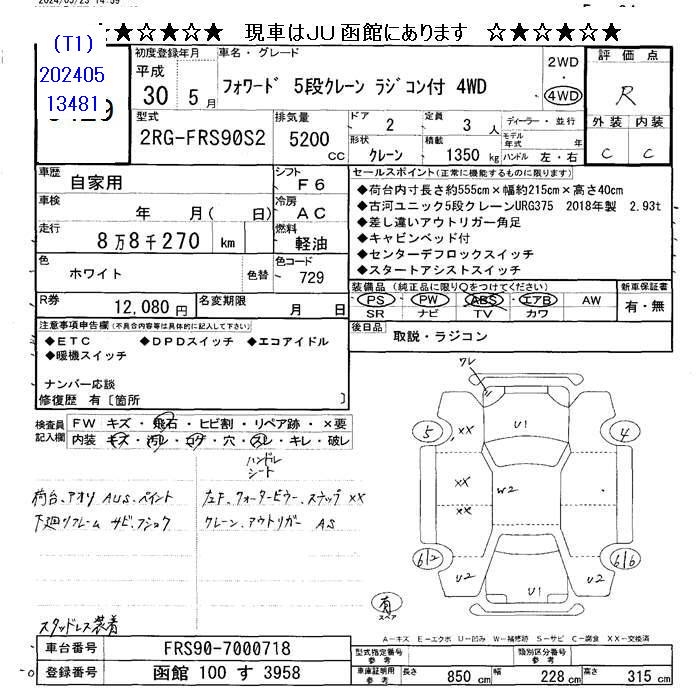 ☆★☆★☆ 現車はJU函館にあります ☆★☆★☆
(T1)
202405
13481
初度登録年月
平成
30年 5月
車名・グレード
フォワード 5段クレーン ラジコン付 4WD
2WD
・
4WD
評価点
R
型式
2RG-FRS90S2
排気量
5200
CC
ドア
2
定員
3人
形状
クレーン
積載
1350 kg
ディーラー・並行
モデル年式 年
ハンドル 左・右
外装 内装
C C
車歴
自家用
シフト
F6
車検
年 月( 日)
冷房
AC
走行
8万8千270 km
燃料
軽油
色
ホワイト
色替
色コード
729
R券
12,080円
名変期限
月 日
セールスポイント(正常に機能するものに限ります)
◆荷台内寸長さ約555cm×幅約215cm×高さ40cm
◆古河ユニック5段クレーンURG375 2018年製 2.93t
◆差し違いアウトリガー角足
◆キャビンベッド付
◆センターデフロックスイッチ
◆スタートアシストスイッチ
装備品(純正品に限り○をつけてください)
PS PW ABS エアB AW
SR ナビ TV カワ
新車保証書
有・無
後日品
取説・ラジコン
注意事項申告欄(不具合内容等は具体的に記入して下さい)
◆ETC ◆DPDスイッチ ◆エコアイドル
◆暖機スイッチ
ナンバー応談
修復歴 有[箇所 ]
検査員記入欄
FW キズ・飛石・ヒビ割・リペア跡・×要
内装 キズ・汚レ・コゲ・穴・スレ・キレ・破レ
ハンドル
シート
荷台、アオリ AUS、ペイント
下廻リフレーム サビ、フショク
左F、クォータービュー、ステップ XX
クレーン、アウトリガー AS
スタッドレス装着
ワレ
U1
XX
5
4
XX
W2
XX
6/2
6/6
U2
U2
U1
有
スペア
A-キズ E-エクボ U-凹み W-補修跡 S-サビ C-腐食 XX-交換済
車台番号
FRS90-7000718
登録番号
函館 100 す 3958
型式指定番号
参考
類別区分番号
参考
車庫証明用
参考
長さ
850 cm
幅
228 cm
高さ
315 cm